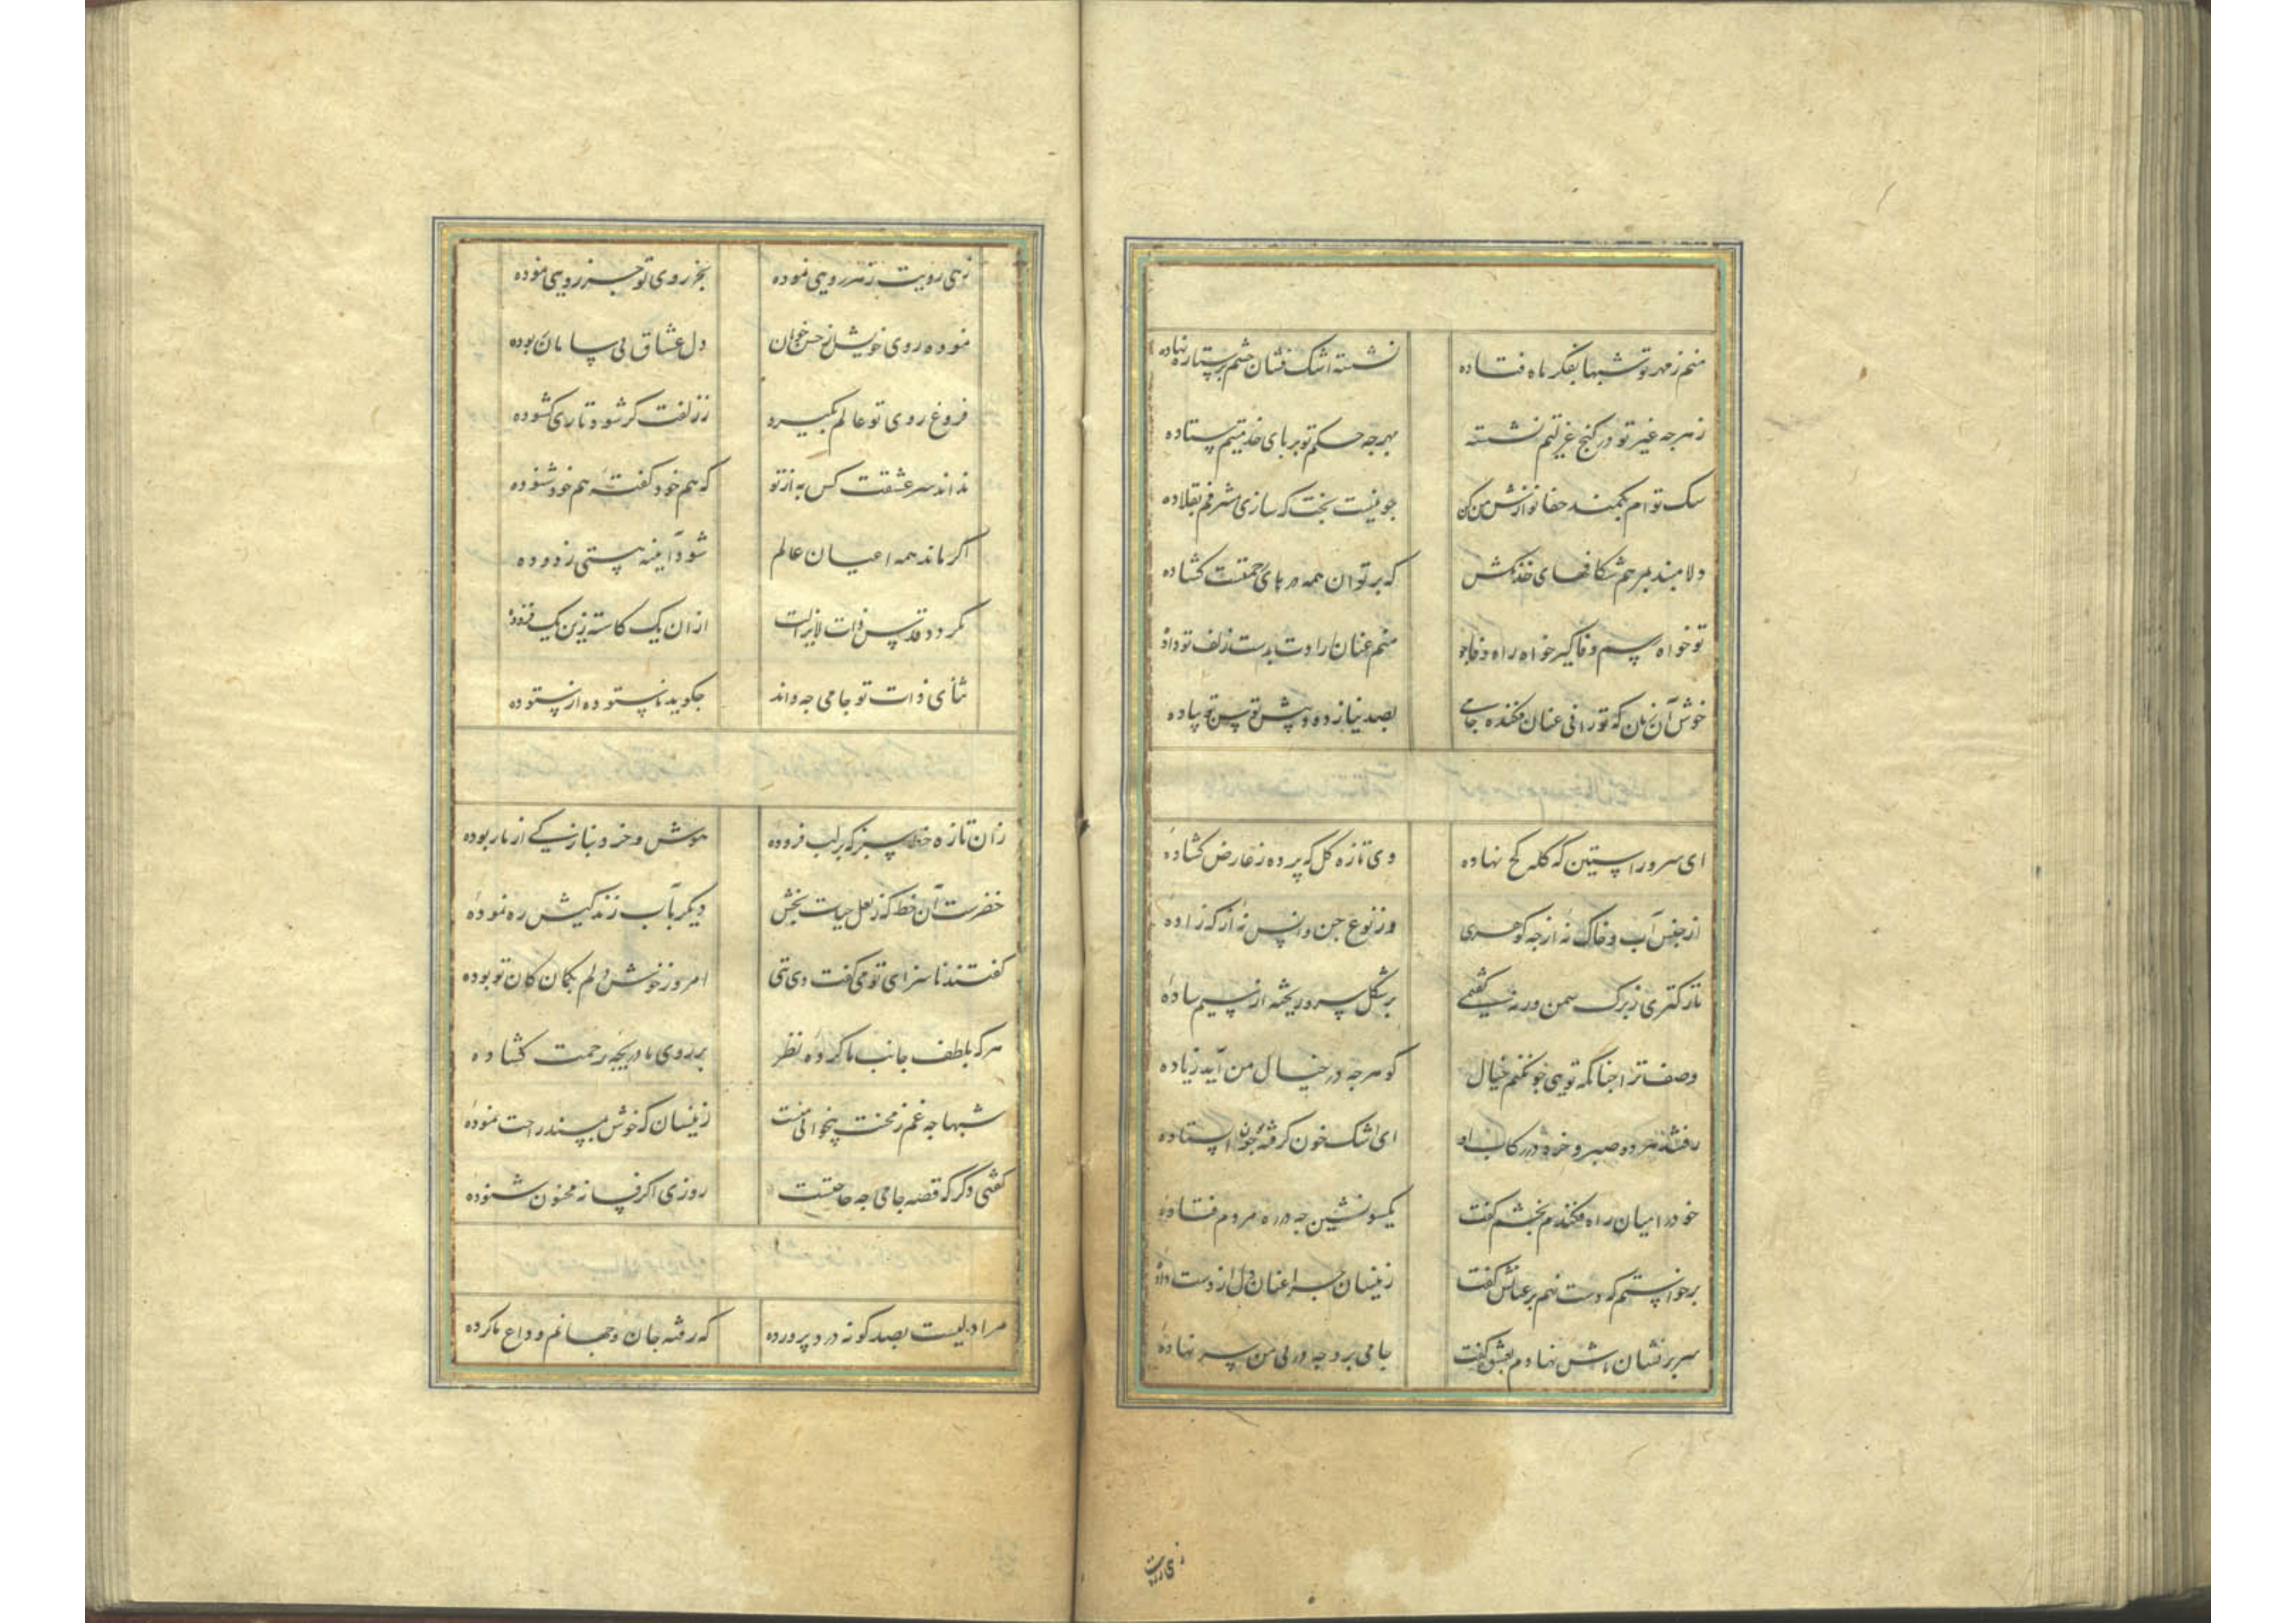 منم ز مهر تو شبها بفکر ماه فتاده
نشسته اشک فشان چشم بر ستاره نهاده
ز هرچه غیر تو در کنج عزلتم نشسته
بهرچه حکم تو بر پای خدمتم ستاده
سک توام بکمند جفا نوازش من کن
جو نیست بخت که سازی مشرفم بقلاده
دلا مبند بمرهم شکافهای خدنکش
که بر تو آن همه درهای رحمتست کشاده
تو خواه رسم وفا گیر خواه راه جفا جو
منم عنان ارادت بدست زلف تو داده
خوش آن زمان که تو رانی عنان فکنده جامی
بصد نیاز دود پیش توسن تو پیاده
ای سرو راستین که کله کج نهاده
وی تازه کل که پرده ز عارض کشاده
از جنس آب و خاک نه از جه کوهری
وز نوع جن و انس نه از که زاده
نازکتری ز برک سمن ورنه گفتمی
بر شکل سرو ریخته از سیم ساده
وصف ترا جنانکه تویی جون کنم خیال
کز هرجه در خیال من آید زیاده
رفتند مرده صبر و خرد در رکاب او
ای اشک خون گرفته جون ایستاده
خود را میان راه فکندم بخشم کفت
یکسو نشین جه در ره مردم فتاده
برخواستم که دست نهم بر عنانش کفت
زینسان جرا عنان دل از دست داده
سر بر نشان پاش نهادم بعشوه کفت
جامی برو جه در پی من سر نهاده
زهی رویت
زهی رویت ز هر رویی نموده
بجز روی تو جز رویی نموده
نموده روی خویش از حسن خوبان
دل عشاق بی سامان بوده
فروغ روی تو عالم بگیرد
ز زلفت کر شود تاری کشوده
نداند سر عشقت کس به از تو
که هم خود کفته هم خود شنوده
اگر ماند همه اعیان عالم
شود آیینه هستی زدوده
نکردد قدس ذات لایزالت
از ان یک کاسته زین یک فزوده
ثنای ذات تو جامی جه داند
جکوید ناستوده از ستوده
زان تازه خط سبز که بر لب فزوده
هوش و خرد بتازکی از ما ربوده
خضرست آن خط که ز لعل حیات بخش
دیگر بآب زندگیش ره نموده
کفتند ناسزای تو می گفت دی تنی
امروز خوش دلم بگمان کان تو بوده
هرگه بلطف جانب ما کرده نظر
بر روی ما دریجه رحمت کشاده
شبها جه غم ز محنت بیخوابی منت
زینسان که خوش ببستر راحت غنوده
کفتی دگر که قصه جامی جه حاجتست
روزی اکر فسانه مجنون شنوده
مرا دلیست بصد کونه درد پرورده
که رفته جان و جهانم وداع ناکرده